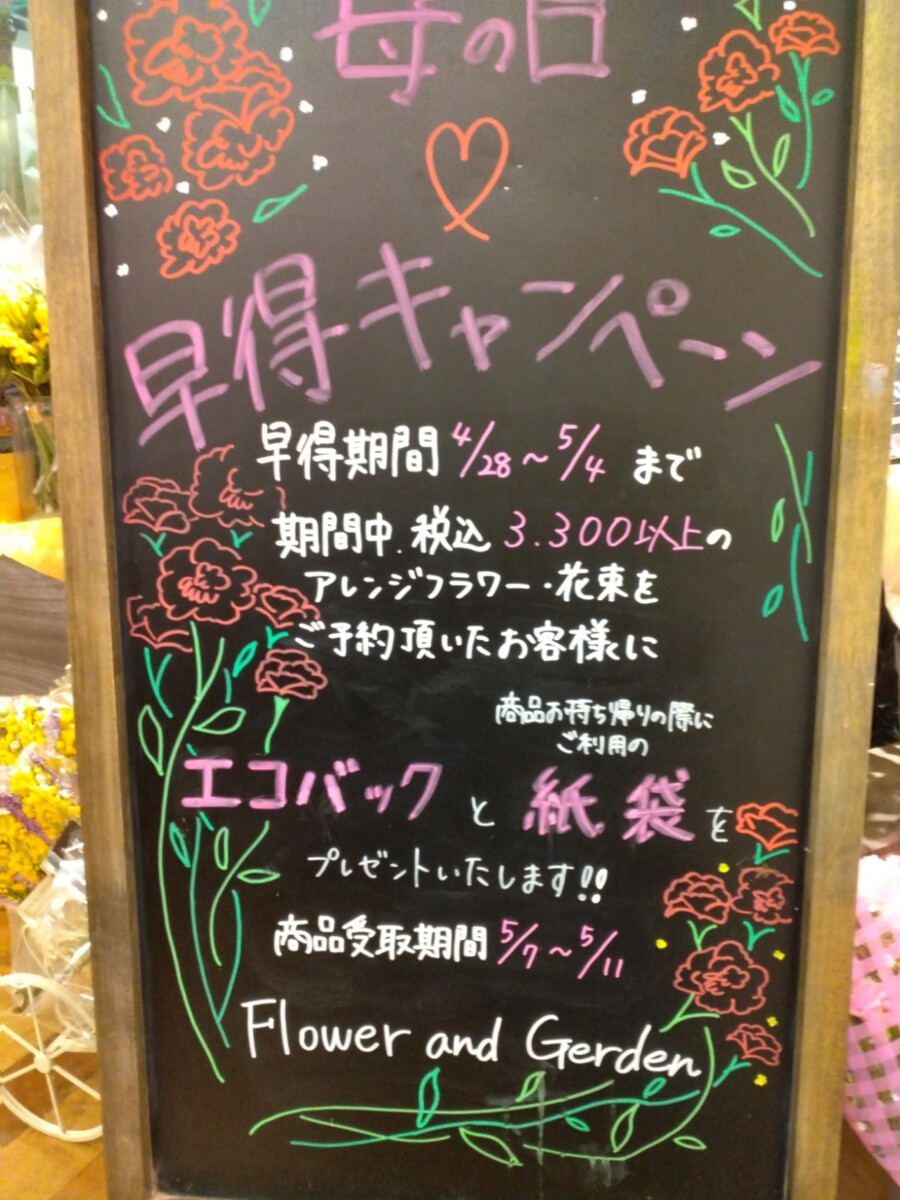 母の日
早得キャンペーン
早得期間 4/28~5/4 まで
期間中.税込 3.300以上の
アレンジフラワー・花束を
ご予約頂いたお客様に
商品お持ち帰りの際に
ご利用の
エコバックと紙袋を
プレゼントいたします!!
商品受取期間 5/7~5/11
Flower and Gerden